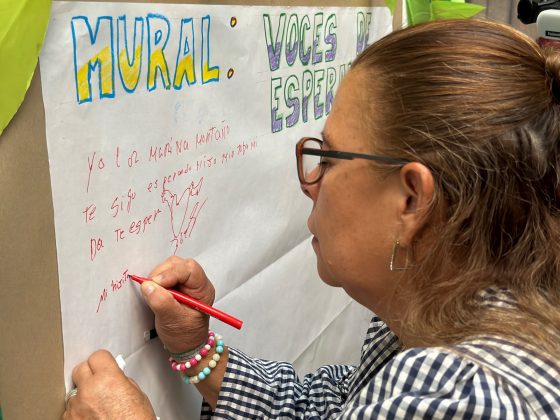 MURAL:
VOCES DE
ESPERA
Yo luz MARINA MONTAÑO
Te sigo esperando Hijo mio todo mi
Da Te esper
Mi hijito